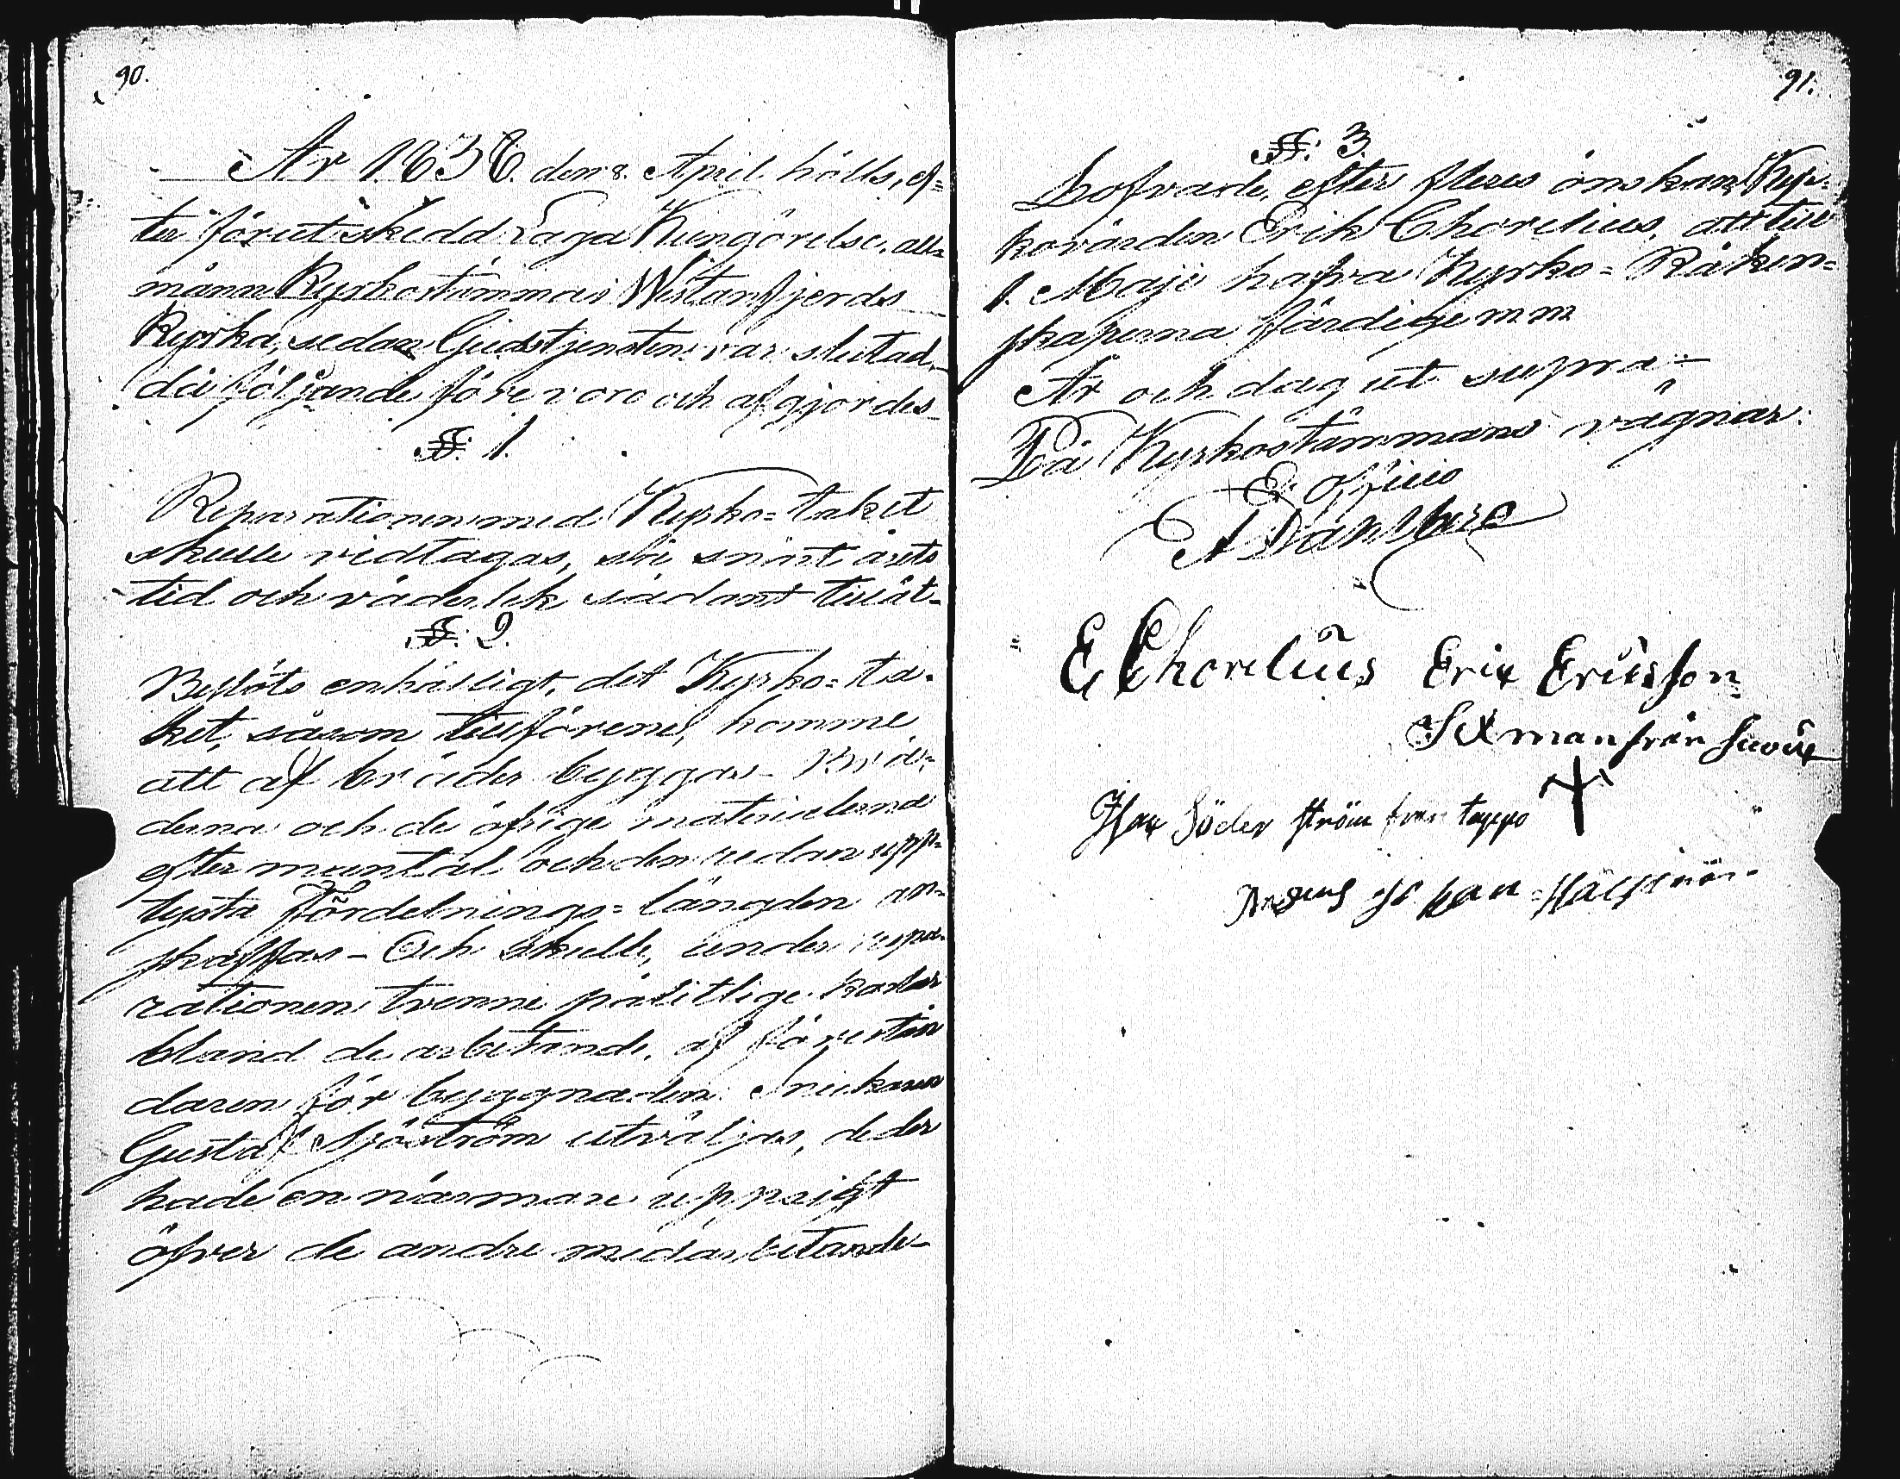 90.
År 1838 den 8. April hölls, ef=
ter förut skedd Laga Kungörelse, all=
männ Kyrkostämma i Westanfjerds
Kyrka, sedan Gudstjensten var slutad,
då följande förevoro och afgjordes_
§. 1.
Reparationen med Kyrko=taket
skulle vidtagas, så snart årets
tid och väderlek sådant tillåt-
§. 2.
Beslöts enhälligt, det Kyrko=ta-
ket, såsom tillförene, komme
att af bräder byggas - Brä-
derna och de öfrige materialierna
efter mantal och den redan upp=
lysta Fördelnings=längden an=
skaffas - Och skulle, under repa-
rationen trenne pålitlige karlar
bland de arbetande, af förestån
daren för byggnaden Snickaren
Gustaf Sjöström utväljas, de der
hade en närmare uppsigt
öfver de andre medarbetande_
91.
§. 3.
Lofvade, efter fleres önskan, Kyr-
kovärden Erik Chorelius, att till
1. Maji hafva Kyrko=Räken=
skaperna färdige mm
År och dag ut supra._
På Kyrkostämmans vägnar:
Ex officio
E Chorelius Erik Ericsson
Sexman från
Isax Söderström från tappo
Johan